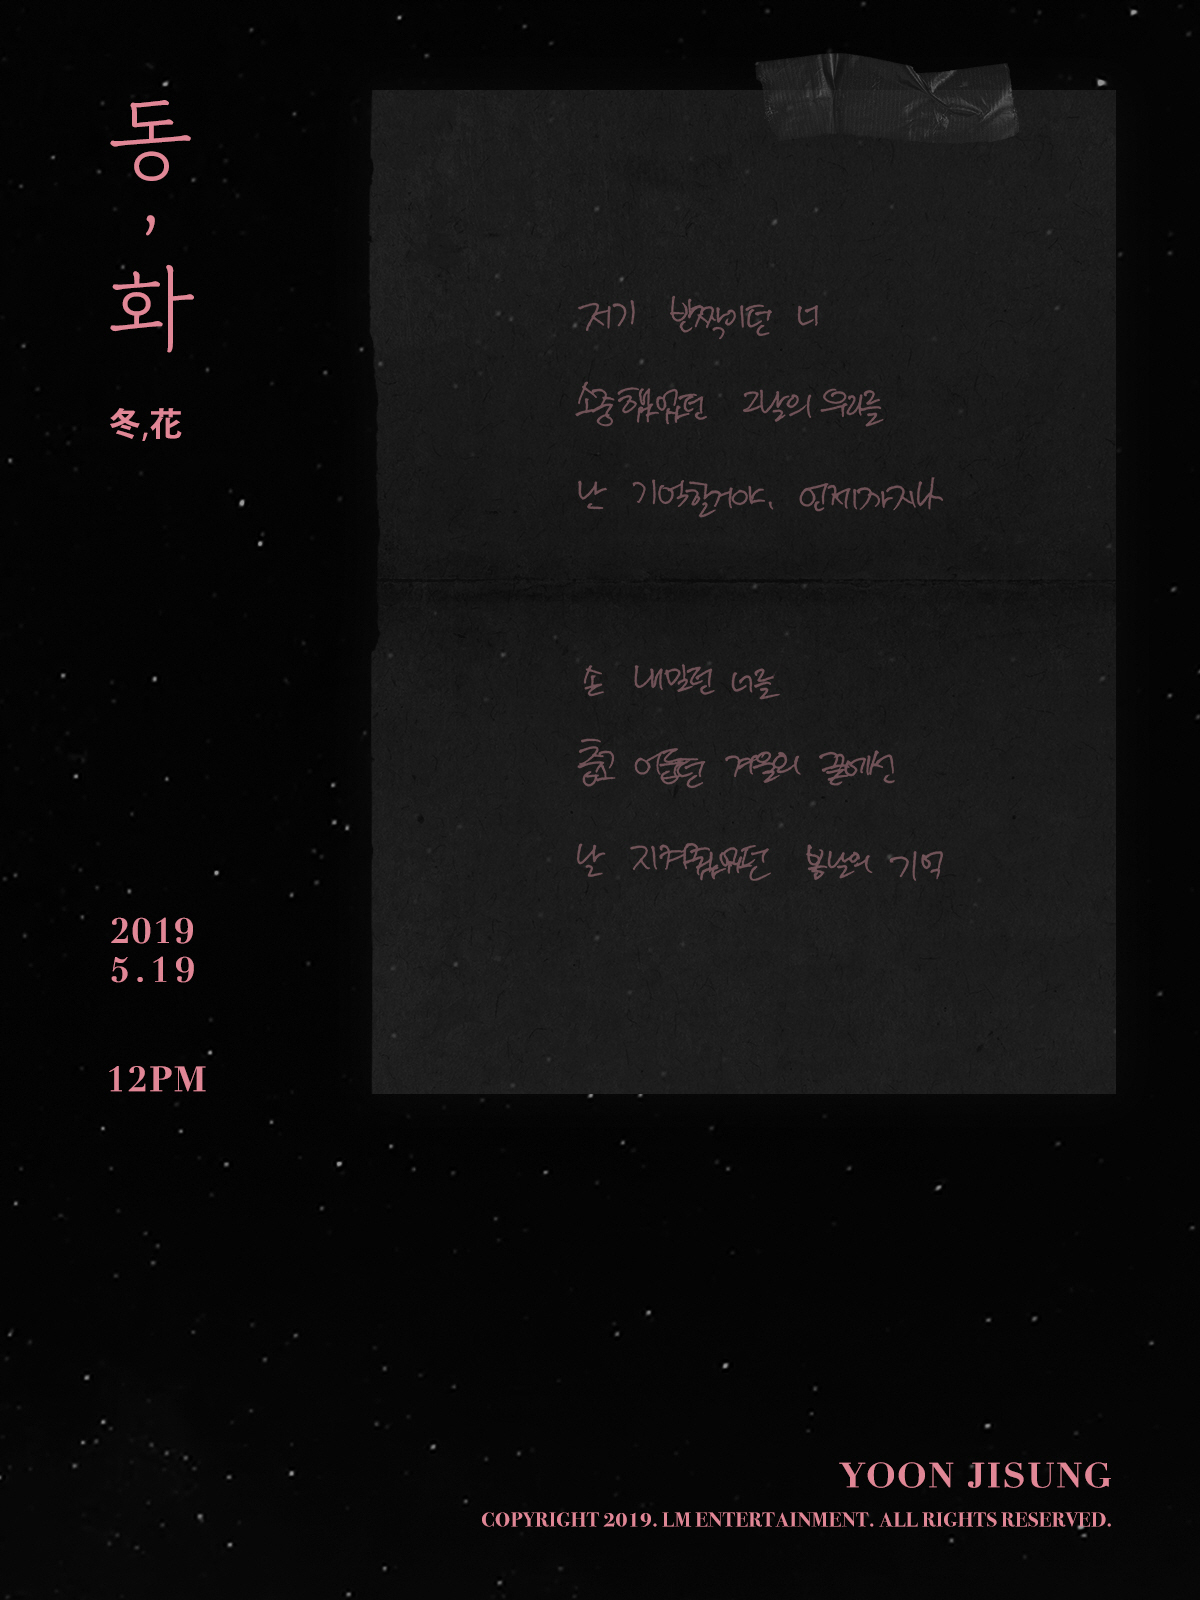 동, 화
冬,花
저기 반짝이던 너
소중했었던 그날의 우리를
난 기억할거야, 언제까지나
손 내밀던 너를
춥고 어둡던 겨울의 끝에선
날 지켜줬었던 봄날의 기억
2019
5.19
12PM
YOON JISUNG
COPYRIGHT 2019. LM ENTERTAINMENT. ALL RIGHTS RESERVED.